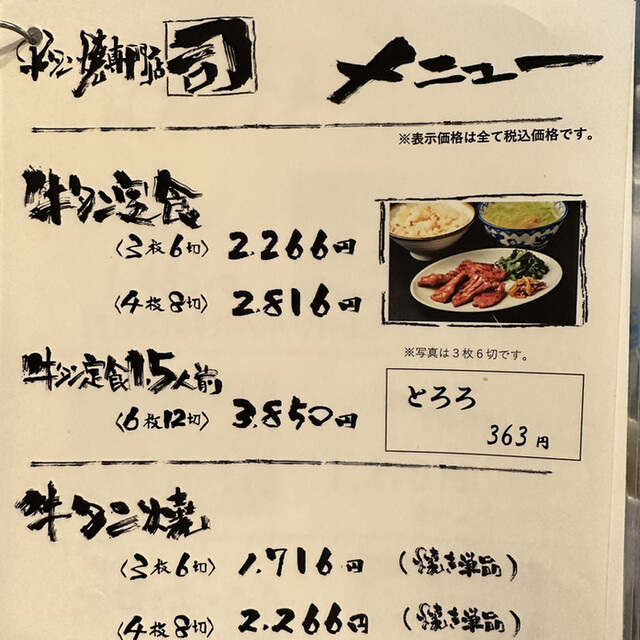 牛タン焼専門店 司 メニュー
※表示価格は全て税込価格です。
牛タン定食
〈3枚6切〉 2.266円
〈4枚8切〉 2.816円
※写真は3枚6切です。
牛タン定食1.5人前
〈6枚12切〉 3.850円
とろろ
363円
牛タン焼
〈3枚6切〉 1.716円 (焼き単品)
〈4枚8切〉 2.266円 (焼き単品)